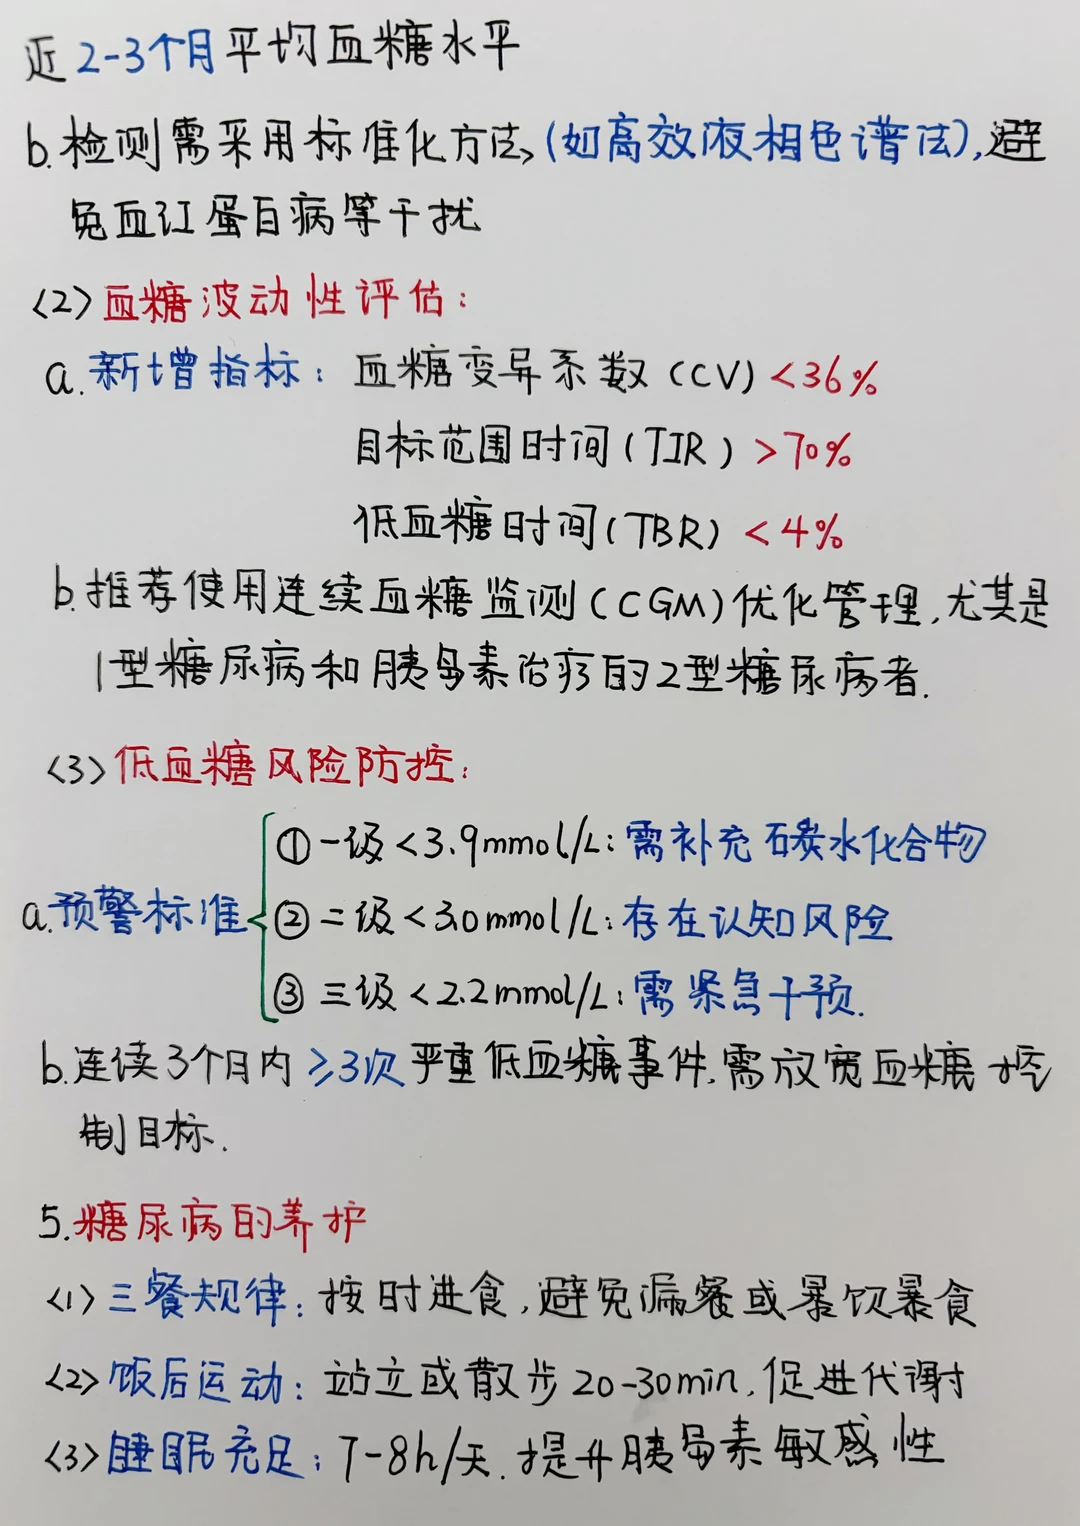 近2-3个月平均血糖水平
b.检测需采用标准化方法,(如高效液相色谱法),避
免血红蛋白病等干扰
<2>血糖波动性评估:
a.新增指标: 血糖变异系数(CV)<36%
目标范围时间(TIR)>70%
低血糖时间(TBR)<4%
b.推荐使用连续血糖监测(CGM)优化管理,尤其是
1型糖尿病和胰岛素治疗的2型糖尿病者.
<3>低血糖风险防控:
①一级<3.9mmol/L:需补充碳水化合物
a.预警标准 ②二级<3.0mmol/L:存在认知风险
③三级<2.2mmol/L:需紧急干预.
b.连续3个月内≥3次严重低血糖事件.需放宽血糖控
制目标.
5.糖尿病的养护
<1>三餐规律:按时进食,避免漏餐或暴饮暴食
<2>饭后运动:站立或散步20-30min,促进代谢
<3>睡眠充足:7-8h/天.提升胰岛素敏感性